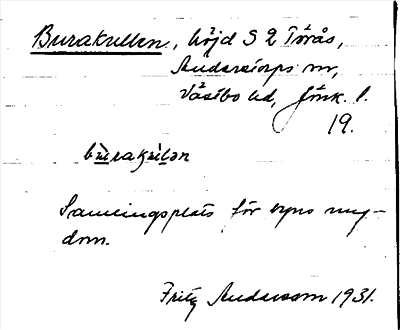 Burakullen, höjd S 2 Törås,
Anderstorps sn,
Västbo hd, Jönk. l.
19.
bu̲rakul̲ən
Samlingsplats för byns ung-
dom.
Fritz Andersson 1931.